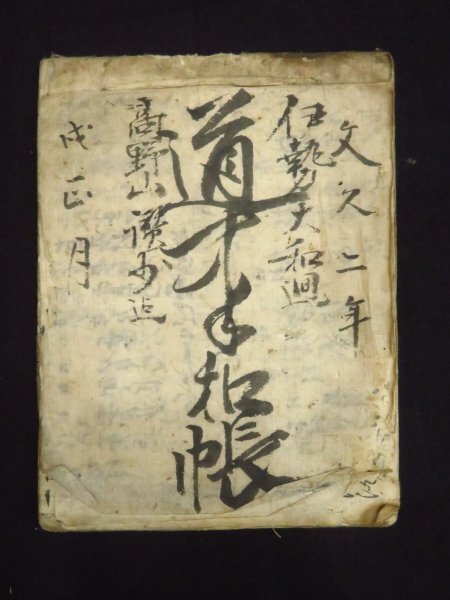 文久二年
伊勢大和廻
道中手扣帳
高野山讃州迄
戌正月